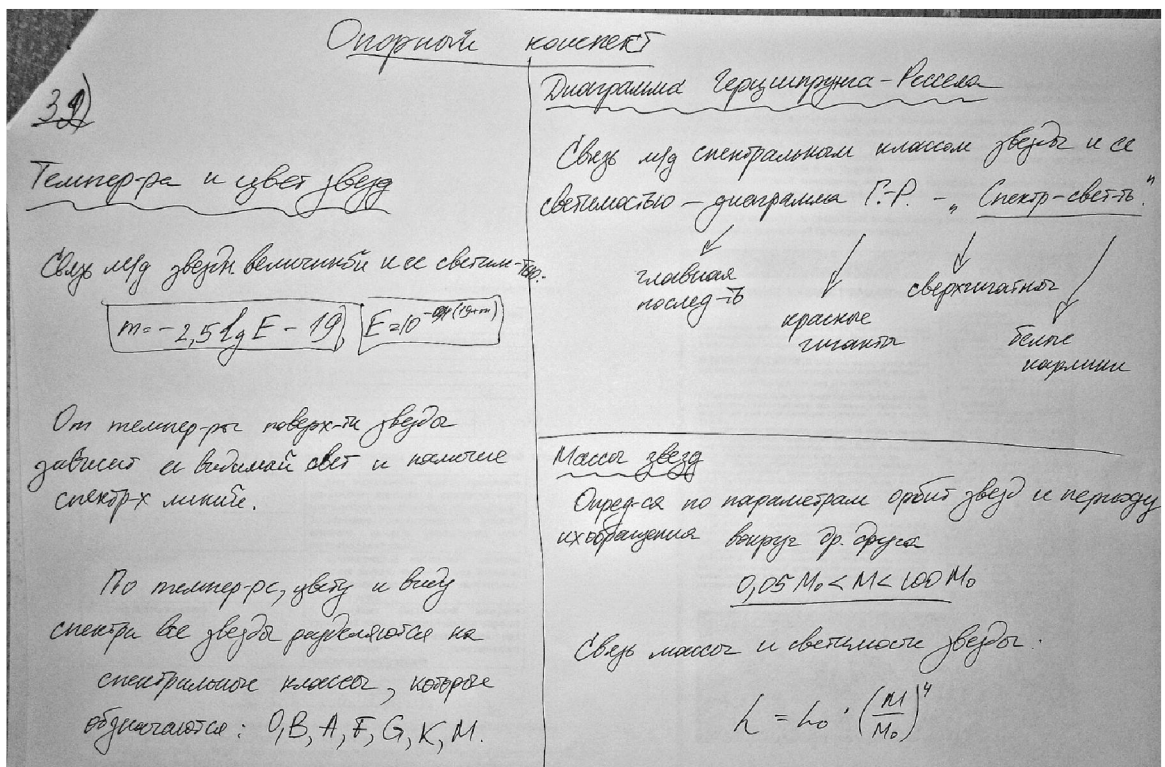 Опорный конспект
39)
Темпер-ра и цвет звезд
Связь м/д звездн величиной и ее светим-тью.
m = -2,5 lg E - 19 E = 10^-0,4(19+m)
От темпер-ры поверх-ти звезды
зависит ее видимый свет и наличие
спектр-х линий.
По темпер-ре, цвету и виду
спектра все звезды разделяются на
спектральные классы, которые
обозначаются: O, B, A, F, G, K, M.
Диаграмма Герцшпрунга-Рессела
Связь м/д спектральным классом звезды и ее
светимостью – диаграмма Г.-Р. – „Спектр-свет-ть"
главная
послед-ть
красные
гиганты
сверхгиганты
белые
карлики
Массы звезд
Опред-ся по параметрам орбит звезд и периоду
их обращения вокруг др. друга
0,05 M₀ < M < 100 M₀
Связь массы и светимости звезды.
L = L₀ · (M/M₀)⁴